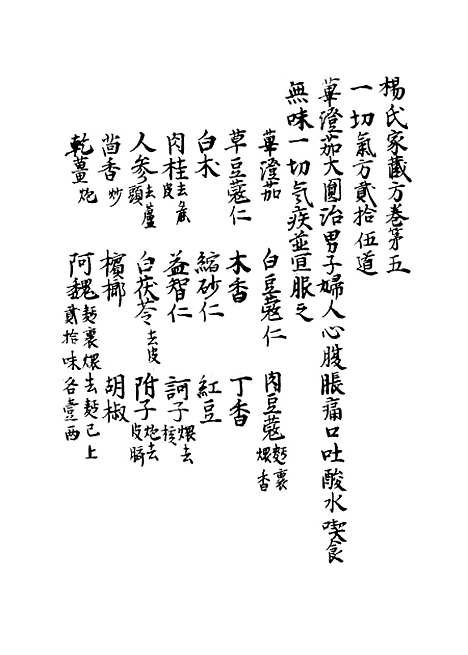 楊氏家藏方卷第五
一切氣方貳拾伍道
蓽澄茄大圓治男子婦人心腹脹痛口吐酸水喫食
無味一切气疾並宜服之
蓽澄茄 白豆蔻仁 肉豆蔻麪裹煨香
草豆蔻仁 木香 丁香
白术 縮砂仁 紅豆
肉桂去麄皮 益智仁 訶子煨去核
人参去蘆頭 白茯苓去皮 附子炮去皮臍
茴香炒 檳榔 胡椒
乾薑炮 阿魏麪裹煨去麪已上貳拾味各壹两